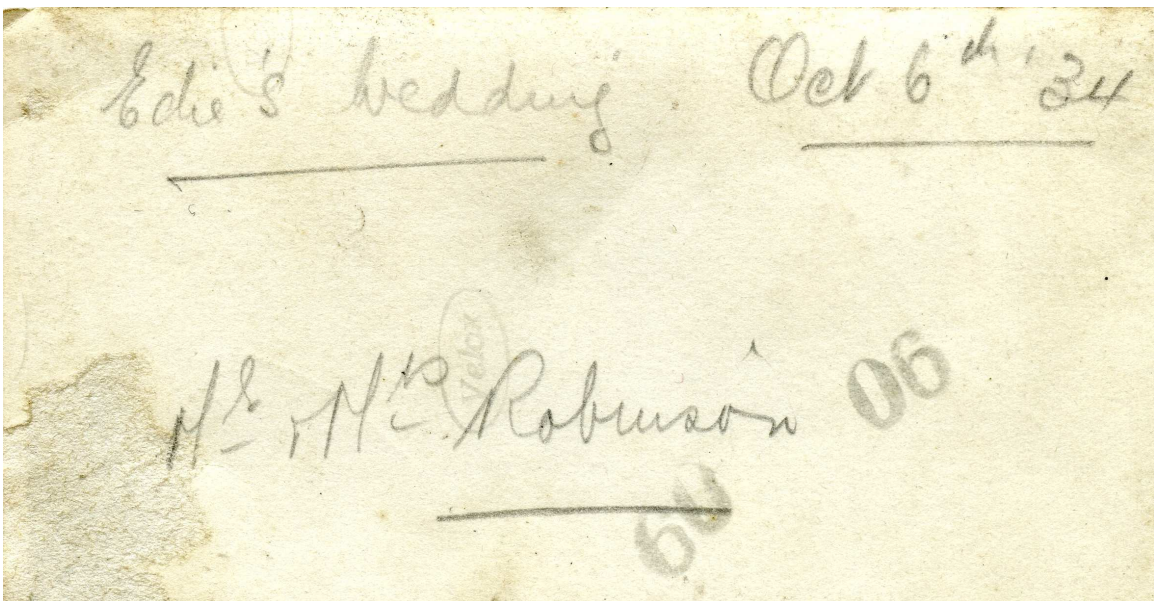 Edie's Wedding. Oct 6th '34
Velox
Mr & Mrs Robinson
06
60